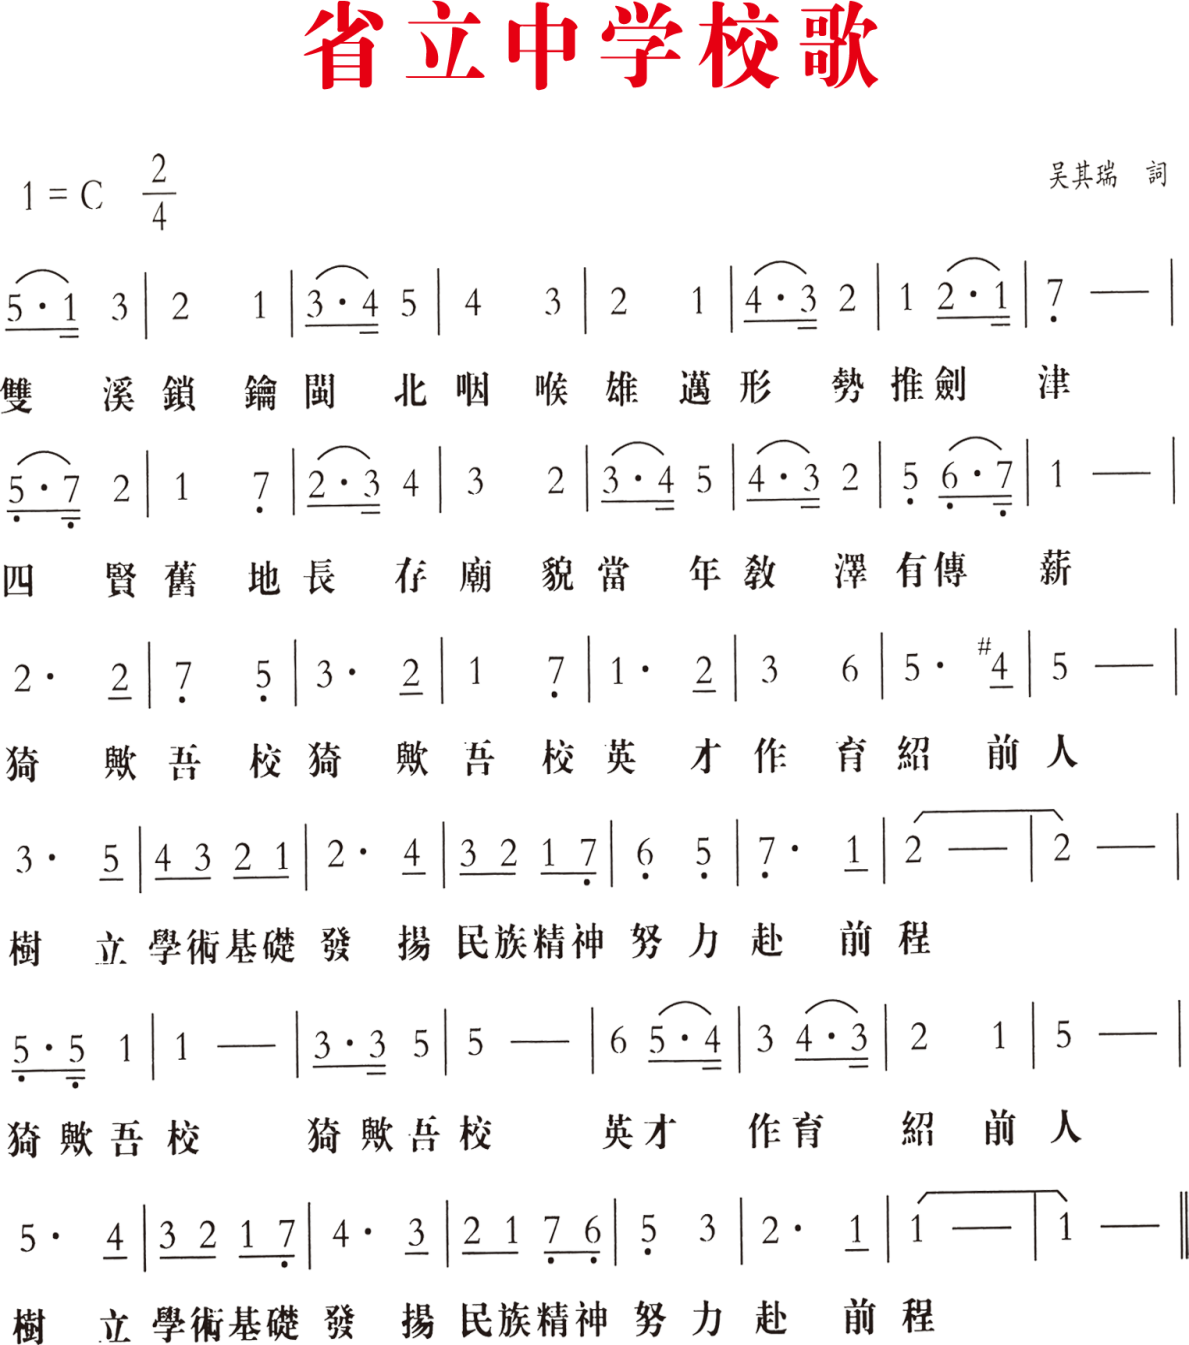 省立中学校歌
1 = C 2/4
吴其瑞 詞
5·1 3 | 2 1 | 3·4 5 | 4 3 | 2 1 | 4·3 2 | 1 2·1 | 7 — |
雙 溪 鎖 鑰 閩 北 咽 喉 雄 邁 形 勢 推 劍 津
5·7 2 | 1 7 | 2·3 4 | 3 2 | 3·4 5 | 4·3 2 | 5 6·7 | 1 — |
四 賢 舊 地 長 存 廟 貌 當 年 敎 澤 有 傳 薪
2· 2 | 7 5 | 3· 2 | 1 7 | 1· 2 | 3 6 | 5· #4 | 5 — |
猗 歟 吾 校 猗 歟 吾 校 英 才 作 育 紹 前 人
3· 5 | 4 3 2 1 | 2· 4 | 3 2 1 7 | 6 5 | 7· 1 | 2 — | 2 — |
樹 立 學術基礎 發 揚 民族精神 努 力 赴 前 程
5·5 1 | 1 — | 3·3 5 | 5 — | 6 5·4 | 3 4·3 | 2 1 | 5 — |
猗 歟 吾 校 猗 歟 吾 校 英 才 作 育 紹 前 人
5· 4 | 3 2 1 7 | 4· 3 | 2 1 7 6 | 5 3 | 2· 1 | 1 — | 1 — ‖
樹 立 學術基礎 發 揚 民族精神 努 力 赴 前 程